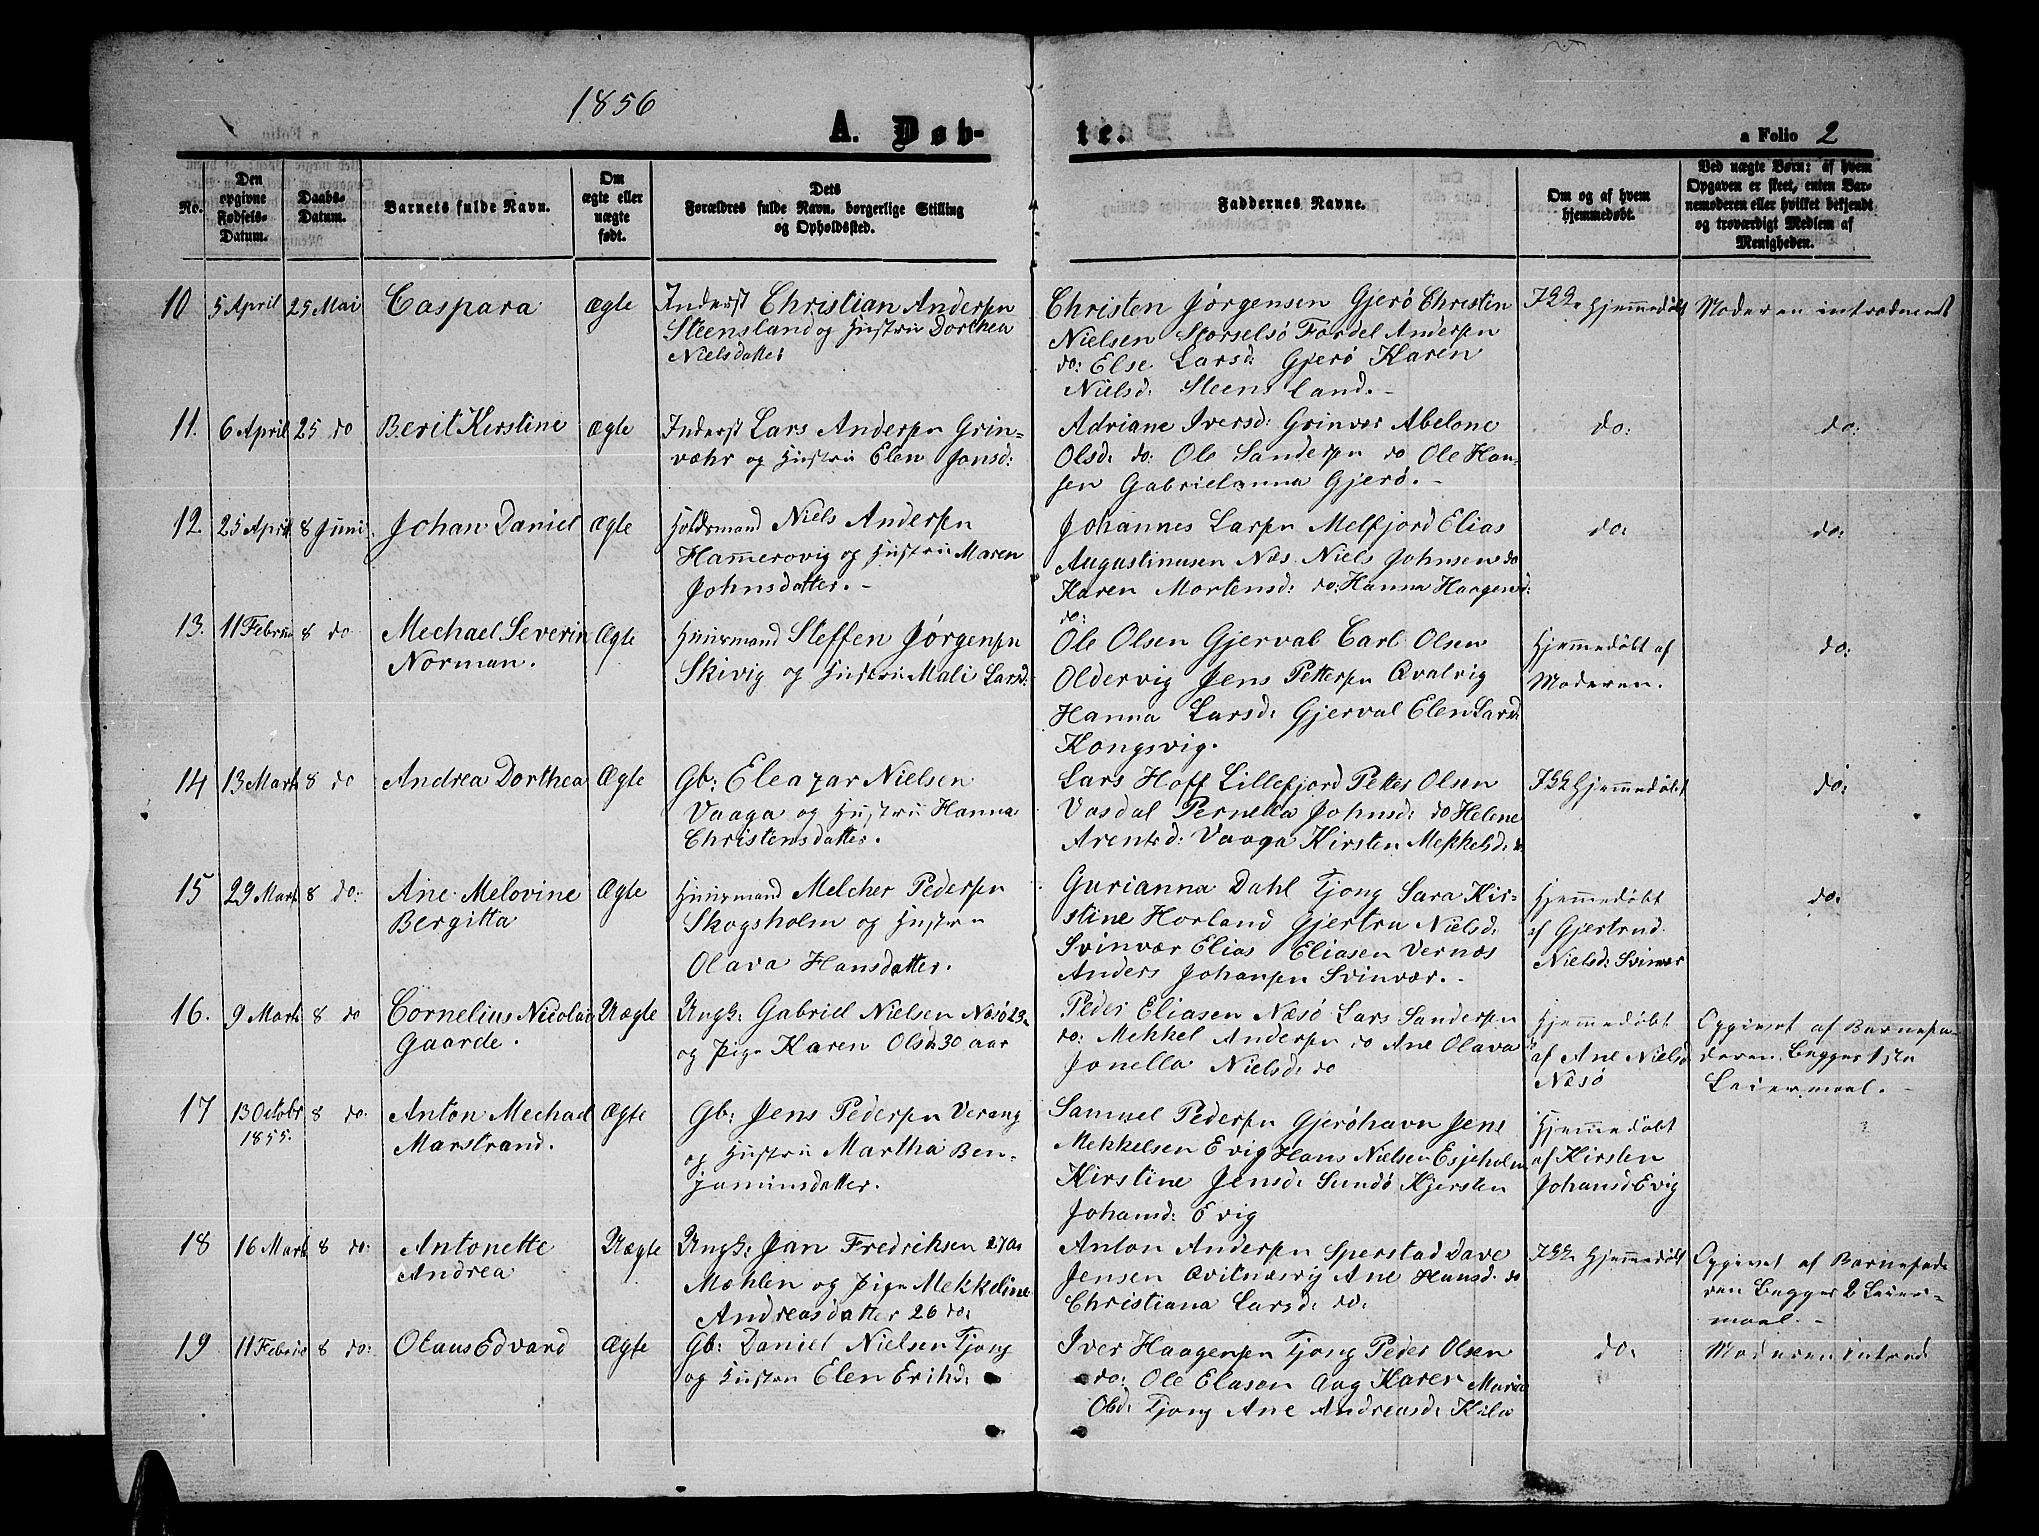 1856
A. Døb-
te.
a Folio 2
No.
Den
opgivne
Fødsels-
Datum.
Daabs-
Datum.
Barnets fulde Navn.
Om
ægte eller
uægte
født.
Dets
Forældres fulde Navn, borgerlige Stilling
og Opholdssted.
Faddernes Navne.
Om og af hvem
hjemmedøbt.
Ved uægte Børn: af hvem
Opgaven er skeet, enten Bar-
nemoderen eller hvilket bekjendt
og troværdigt Medlem af
Menigheden.
10 5 April 25 Mai Caspara Ægte Inderst Christian Andersen
Steensland og Hustru Dorthea
Nielsdatter
Christen Jørgensen Gjerö Christen
Nielsen Storselsö Fordel Andersen
do: Else Larsd: Gjerö Karen
Nielsd: Steensland.-
Hjemmedöbt
Moderen introduceret
11. 6 April 25 do Berit Kirstine Ægte Inderst Lars Andersen Grin=
væhr og Hustru Elen Jonsd:
Adriane Iversd: Grinvær Abelone
Olsd: do: Ole Sandersen do Ole Han-
sen Gabrielanna Gjerö.-
do:
do:
12. 25 April 8 Juni Johan Daniel Ægte Holdsmand Niels Andersen
Hammerovig og Hustru Maren
Johnsdatter.-
Johannes Larsen Melfjord Elias
Augustinusen Nos Niels Johnsen do
Karen Mortensd: do: Hanna Haagensd:
do:
do:
do:
13. 11 Februar 8 do Mechael Severin
Norman.
Ægte Huusmand Steffen Jørgensen
Skivig og Hustru Mali Larsd:
Ole Olsen Gjerval Carl Olsen
Oldervig Jens Pettersen Qvalvig
Hanna Larsd: Gjerval Elen Larsd:
Kongsvig.
Hjemmedöbt af
Moderen.
do:
14 13 Marts 8 do Andrea Dorthea Ægte Gb: Eleazar Nielsen
Vaaga og Hustru Hanna
Christensdatter.
Lars Hoff Lillefjord Petter Olsen
Vasdal Pernella Johnsd: do Helene
Arentsd: Vaaga Kirsten Mekkelsd: do
Hjemmedöbt
do:
15 29 Marts 8 do: Ane Melovine
Bergitta
Ægte Huusmand Melcher Pedersen
Skogsholm og Hustru
Olava Hansdatter.
Gurianna Dahl Tjong Sara Kir-
stine Horland Gjertru Nielsd:
Svinvær Elias Eliasen Vernæs
Anders Johansen Svinvær.-
Hjemmedöbt
af Gjertrud
Nielsd: Svinvær
do:
16. 9 Marts 8 do Cornelius Nicolai
Gaarde.
Uægte Ungk: Gabriel Nielsen Næsö 23
og Pige Karen Olsd: 30 aar
Peder Eliasen Næsö Lars Sandersen
do: Mekkel Andersen do Ane Olava
Jonella Nielsd: do
Hjemmedöbt
af Ane Nielsd
Næsö
Opgivet af Barnefa-
deren. Begges 1ste
Leiermaal.-
17 13 Octobr
1855.
8 do: Anton Mechael
Marstrand.
Ægte Gb: Jens Pedersen Verang
og Hustru Martha Ben-
jaminsdatter.
Samuel Pedersen Gjeröhavn Jens
Mekkelsen Evig Hans Nielsen Esjeholm
Kirstine Jensd: Sundö Kjersten
Johansd: Evig
Hjemmedöbt
af Kirsten
Johansd Evig
18 16 Marts 8 do: Antonette
Andrea
Uægte Ungk: Jan Fredriksen 27 Aar
Mæhlen og Pige Mekkeline
Andreasdatter 26 do:
Anton Andersen Sperstad Dave
Jensen Qvitnæsvig Ane Hansd: do
Christiana Larsd: do.
Hjemmedöbt
Opgivet af Barnefade
ren Begges 2 Leier-
maal.-
19 11 Februar 8 do: Olaus Edvard Ægte Gb: Daniel Nielsen Tjong
og Hustru Elen Eriksd:
Iver Haagensen Tjong Peder Olsen
do: Ole Elasen Aag Karen Maria
Olsd: Tjong Ane Andreasd: Kila
do:
Moderen introd